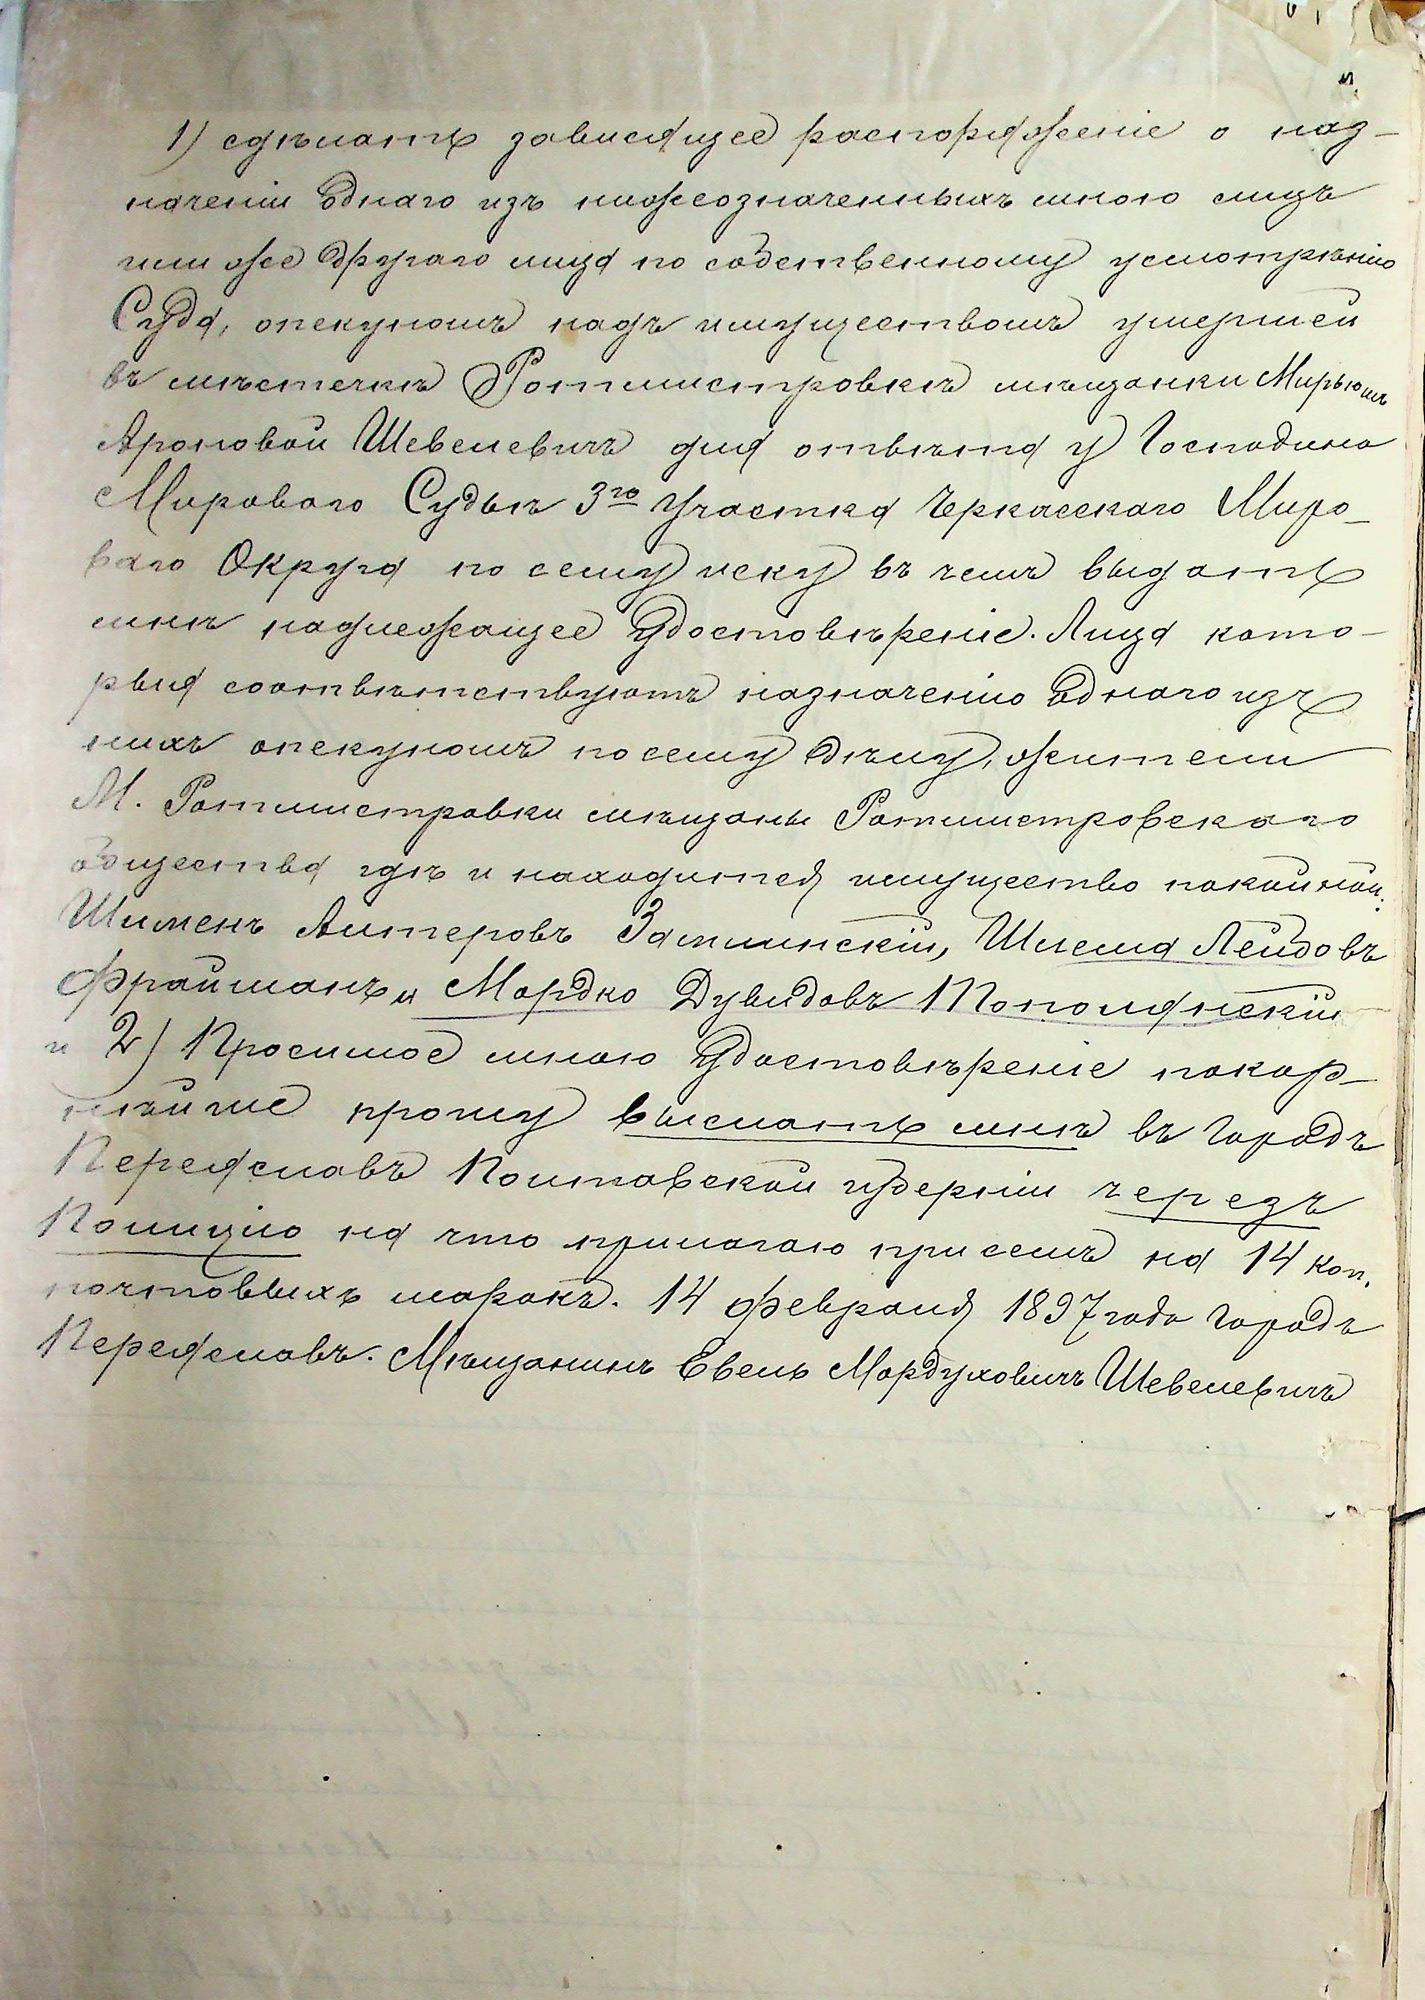 1) сдѣлать зависящее распоряженіе о наз-
наченіи однаго изъ нижеозначенныхъ мною лицъ
или же другаго лица по собственному усмотрѣнію
Суда, опекуномъ надъ имуществомъ умершей
въ мѣстечкѣ Ротмистровкѣ мѣщанки Мирьямъ
Ароновой Шевелевичъ для отвѣта у Господина
Мироваго Судьи 3го Участка Черкасскаго Миро-
ваго Округа по сему иску въ чемъ выдать
мнѣ надлежащее удостовѣреніе. Лица кото-
рыя соотвѣтствуютъ назначенію однаго изъ
нихъ опекуномъ по сему дѣлу, жители
М. Ротмистровки мѣщаны Ротмистровскаго
общества гдѣ и находится имущество покойной:
Шименъ Литеровъ Затминскій, Шлема Лейбовъ
Фрайманъ и Мордко Дувидовъ Тополянскій
и 2) Просимое мною удостовѣреніе покор-
нѣйше прошу выслать мнѣ въ городъ
Переяславъ Полтавской губерніи черезъ
Полицію на что прилагаю при семъ на 14 коп.
почтовыхъ марокъ. 14 февраля 1897 года городъ
Переяславъ. Мѣщанинъ Евель Мордуховичъ Шевелевичъ